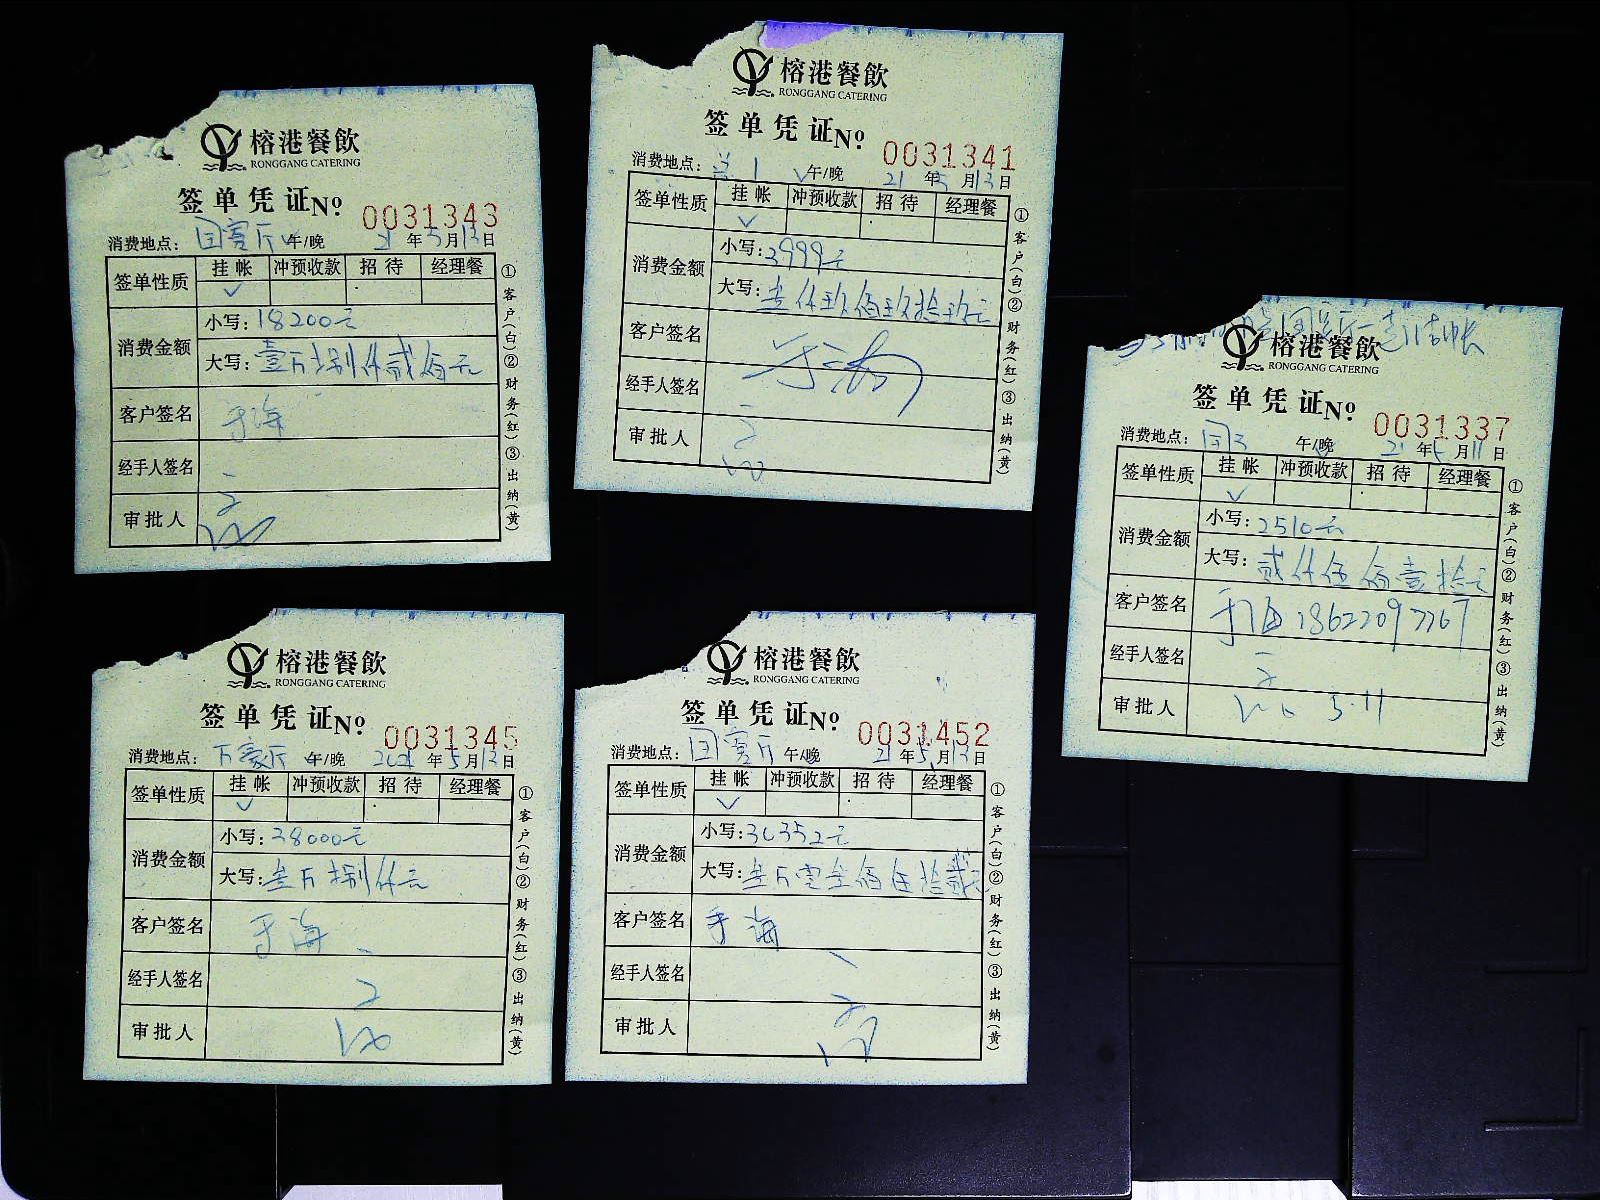 榕港餐飲
RONGGANG CATERING
签单凭证 No. 0031343
消费地点: 国宴厅 午/晚 21年5月13日
签单性质 挂帐 冲预收款 招待 经理餐
✓
消费金额 小写: 18200元
大写: 壹万捌仟贰佰元
客户签名 于海
经手人签名
审批人
①客户(白)②财务(红)③出纳(黄)
榕港餐飲
RONGGANG CATERING
签单凭证 No. 0031341
消费地点: 午/晚 21年5月13日
签单性质 挂帐 冲预收款 招待 经理餐
✓
消费金额 小写: 3999元
大写: 叁仟玖佰玖拾玖元
客户签名 于海
经手人签名
审批人
①客户(白)②财务(红)③出纳(黄)
结帐
榕港餐飲
RONGGANG CATERING
签单凭证 No. 0031337
消费地点: 午/晚 21年5月11日
签单性质 挂帐 冲预收款 招待 经理餐
✓
消费金额 小写: 2510元
大写: 贰仟伍佰壹拾元
客户签名 于海 18622097767
经手人签名
审批人 5.11
①客户(白)②财务(红)③出纳(黄)
榕港餐飲
RONGGANG CATERING
签单凭证 No. 0031345
消费地点: 万豪厅 午/晚 2021年5月13日
签单性质 挂帐 冲预收款 招待 经理餐
✓
消费金额 小写: 38000元
大写: 叁万捌仟元
客户签名 于海
经手人签名
审批人
①客户(白)②财务(红)③出纳(黄)
榕港餐飲
RONGGANG CATERING
签单凭证 No. 0031452
消费地点: 国宴厅 午/晚 21年5月13日
签单性质 挂帐 冲预收款 招待 经理餐
✓
消费金额 小写: 30352元
大写: 叁万零叁佰伍拾贰元
客户签名 于海
经手人签名
审批人
①客户(白)②财务(红)③出纳(黄)